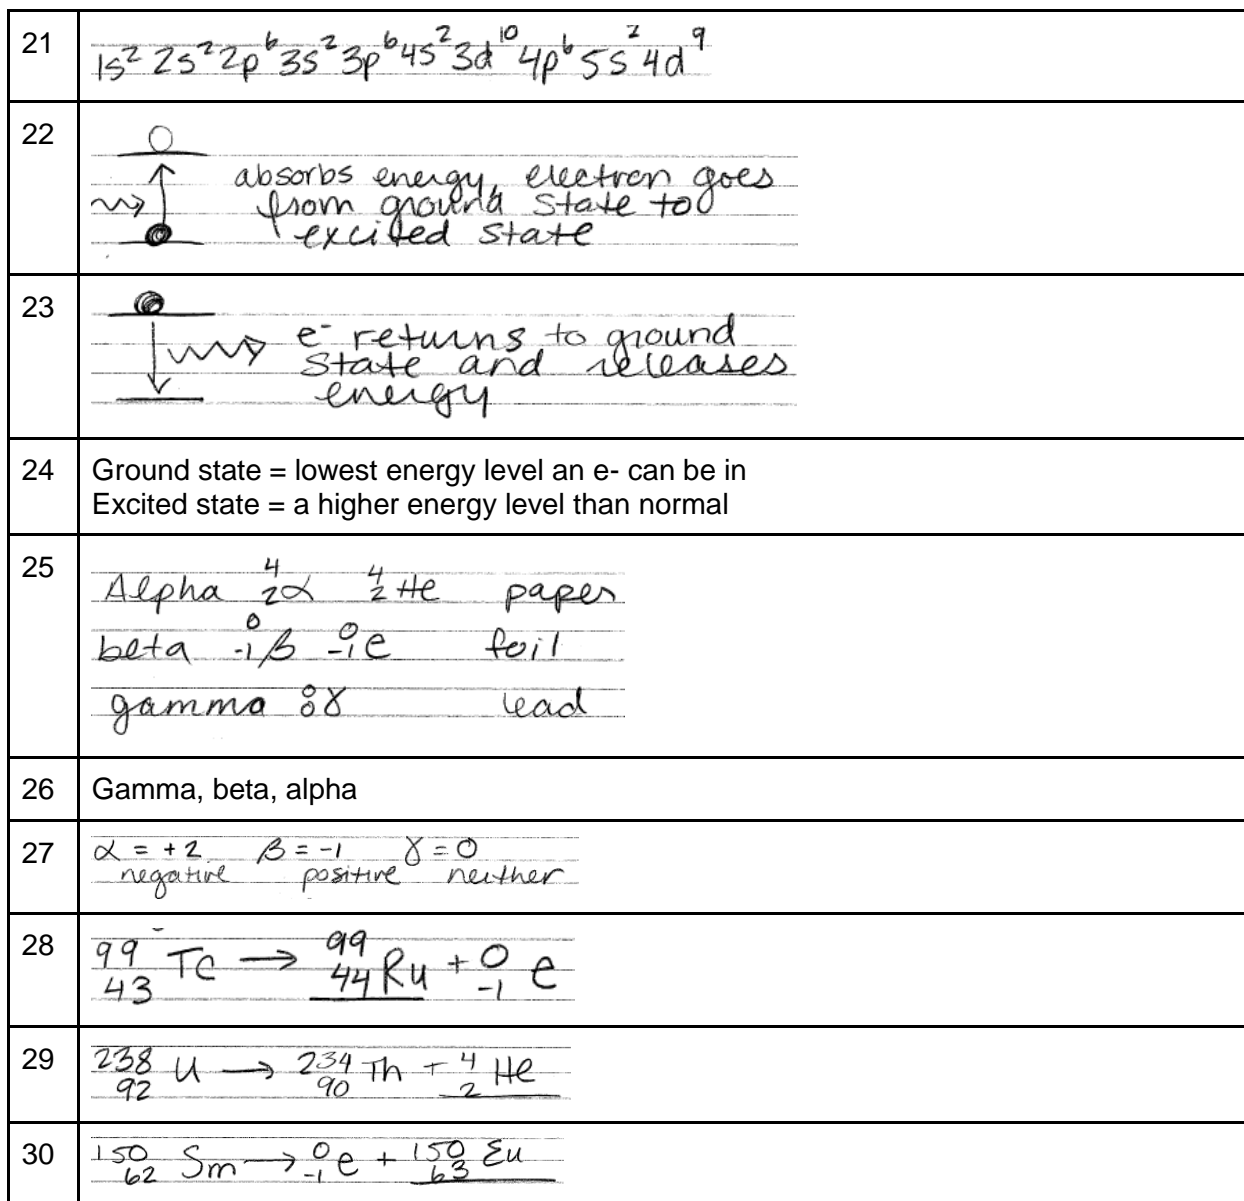 21 1s² 2s² 2p⁶ 3s² 3p⁶ 4s² 3d¹⁰ 4p⁶ 5s² 4d⁹
22
absorbs energy, electron goes
from ground state to
excited state
23
e⁻ returns to ground
state and releases
energy
24 Ground state = lowest energy level an e- can be in
Excited state = a higher energy level than normal
25 Alpha ⁴₂α ⁴₂He paper
beta ⁰₋₁β ⁰₋₁e foil
gamma ⁰₀γ lead
26 Gamma, beta, alpha
27 α = +2 β = -1 γ = 0
negative positive neither
28 ⁹⁹₄₃Tc → ⁹⁹₄₄Ru + ⁰₋₁e
29 ²³⁸₉₂U → ²³⁴₉₀Th + ⁴₂He
30 ¹⁵⁰₆₂Sm → ⁰₋₁e + ¹⁵⁰₆₃Eu